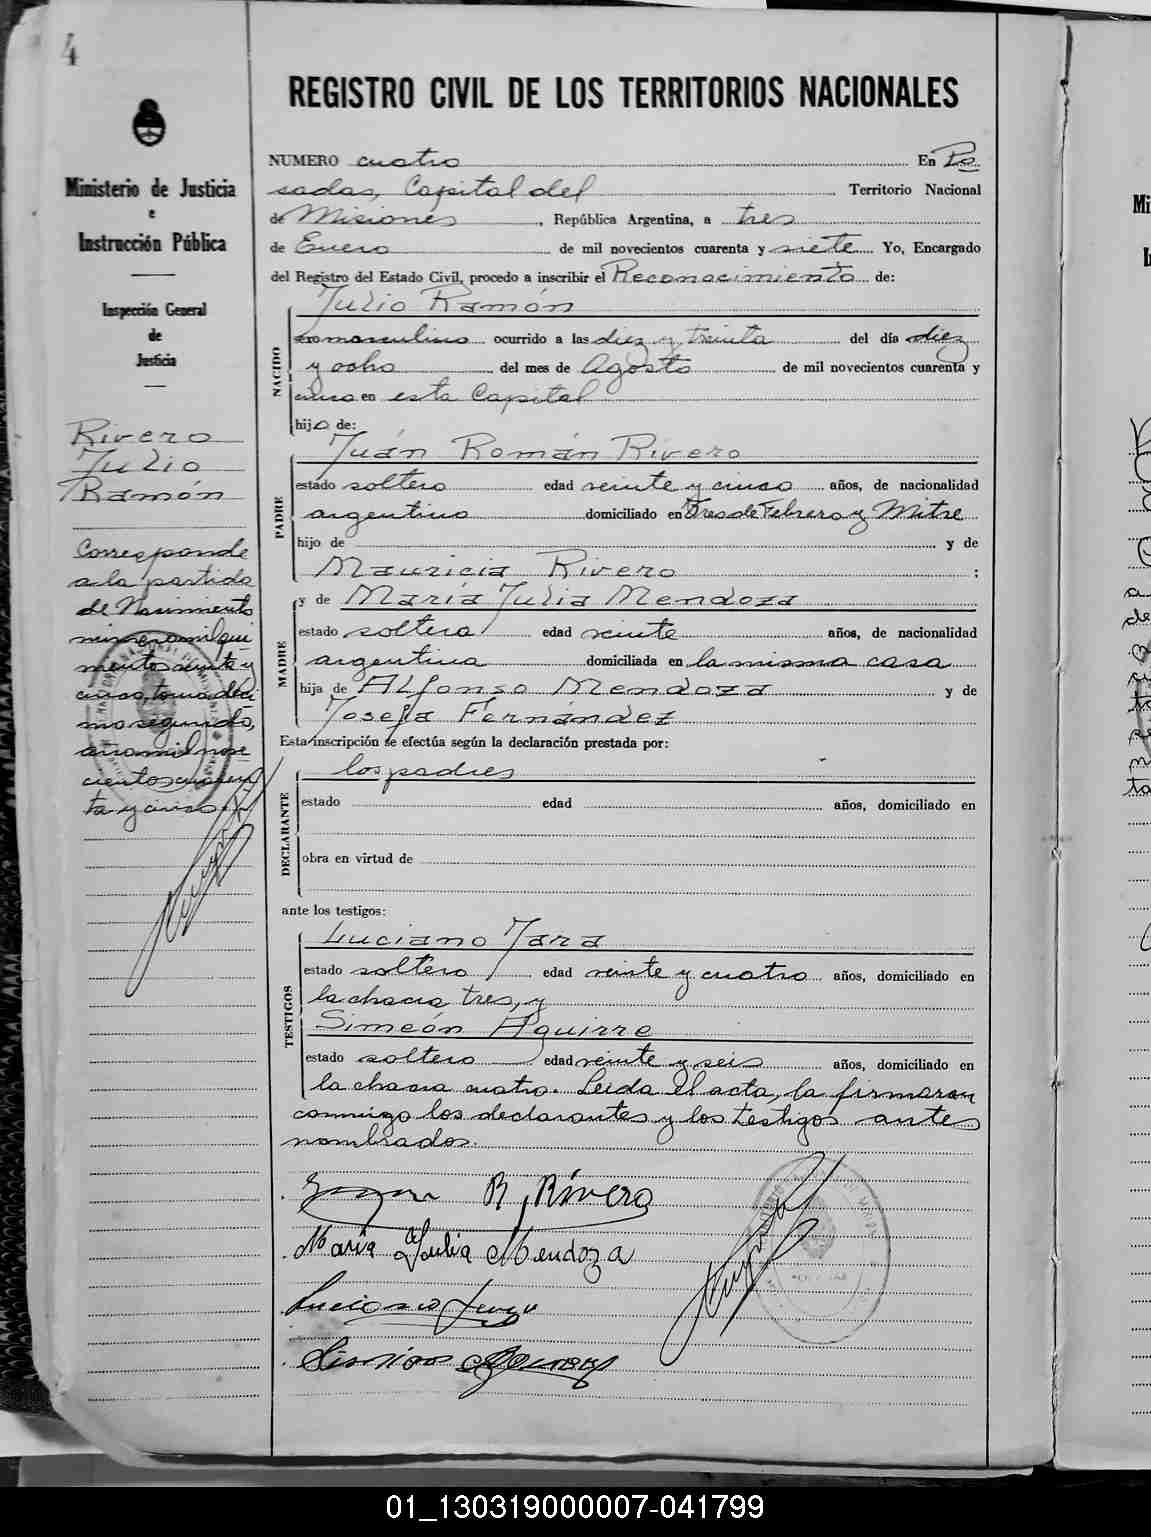 4
REGISTRO CIVIL DE LOS TERRITORIOS NACIONALES
Ministerio de Justicia
e
Instrucción Pública
Inspección General
de
Justicia
Rivero
Julio
Ramón
Corresponde
a la partida
de Nacimiento
número mil qui
nientos veinte y
cinco, tomo déci
mo segundo,
año mil nove
cientos cuaren
ta y cinco
NUMERO cuatro En Po
sadas, Capital del Territorio Nacional
de Misiones, República Argentina, a tres
de Enero de mil novecientos cuarenta y siete Yo, Encargado
del Registro del Estado Civil, procedo a inscribir el Reconocimiento de:
NACIDO
Julio Ramón
sexo masculino ocurrido a las diez y treinta del día diez
y ocho del mes de Agosto de mil novecientos cuarenta y
cinco en esta Capital
hijo de:
PADRE
Juán Román Rivero
estado soltero edad veinte y cinco años, de nacionalidad
argentino domiciliado en Tres de Febrero y Mitre
hijo de y de
Mauricia Rivero ;
MADRE
y de María Julia Mendoza
estado soltera edad veinte años, de nacionalidad
argentina domiciliada en la misma casa
hija de Alfonso Mendoza y de
Josefa Fernández
Esta inscripción se efectúa según la declaración prestada por:
DECLARANTE
los padres
estado edad años, domiciliado en
obra en virtud de
ante los testigos:
TESTIGOS
Luciano Jara
estado soltero edad veinte y cuatro años, domiciliado en
la chacra tres, y
Simeón Aguirre
estado soltero edad veinte y seis años, domiciliado en
la chacra cuatro. Leida el acta, la firmaron
conmigo los declarantes y los testigos antes
nombrados.
R. Rivero
María Julia Mendoza
01_130319000007-041799